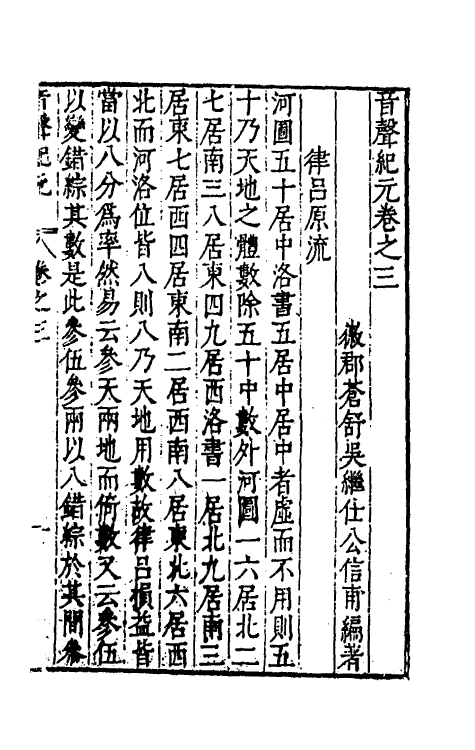 音聲紀元卷之三
徽郡蒼舒吳繼仕公信甫編著
律呂原流
河圖五十居中洛書五居中居中者虛而不用則五
十乃天地之體數除五十中數外河圖一六居北二
七居南三八居東四九居西洛書一居北九居南三
居東七居西四居東南二居西南八居東北六居西
北而河洛位皆八則八乃天地用數故律呂損益皆
當以八分爲率然易云參天兩地而倚數又云參伍
以變錯綜其數是此參伍參兩以八錯綜於其間參
音聲紀元 卷之三 一